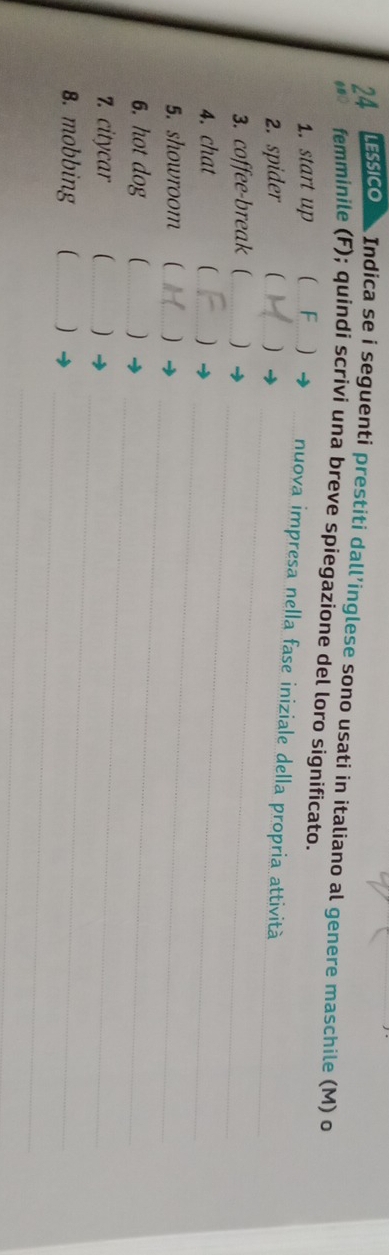 24 LESSICO Indica se i seguenti prestiti dall'inglese sono usati in italiano al genere maschile (M) o
femminile (F); quindi scrivi una breve spiegazione del loro significato.
1. start up ( F ) → nuova impresa nella fase iniziale della propria attività
2. spider ( M ) →
3. coffee-break ( ) →
4. chat ( F ) →
5. showroom ( M ) →
6. hot dog ( ) →
7. citycar ( ) →
8. mobbing ( ) →